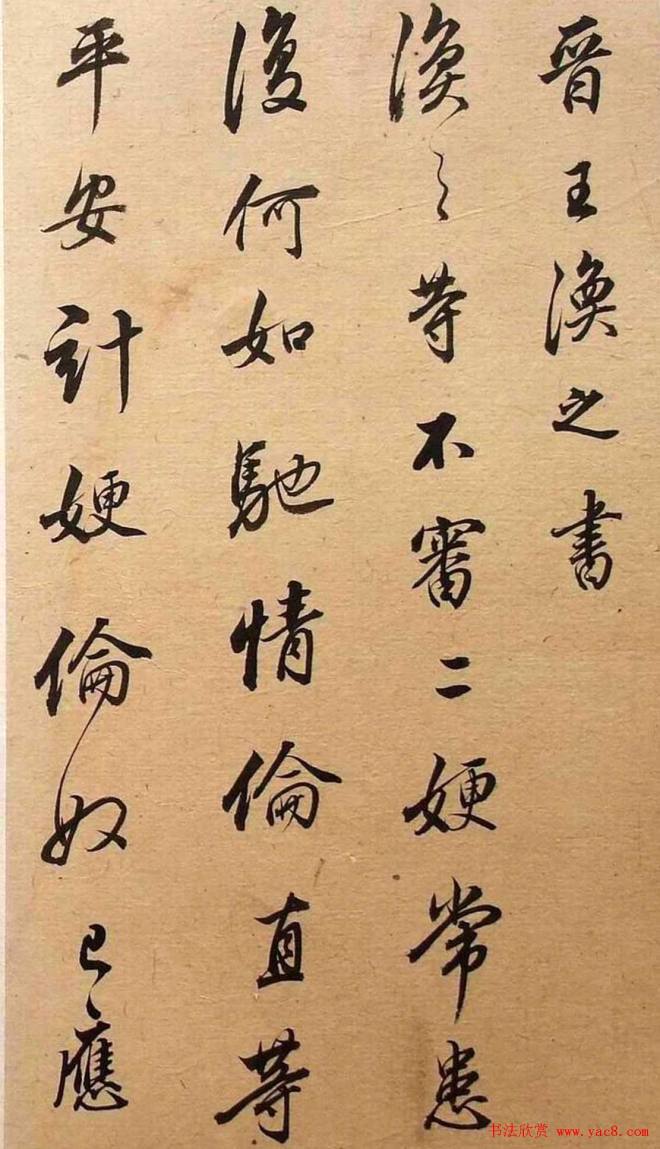 晋王涣之書
渙之等不審二嫂常患
復何如馳情倫直等
平安計嫂倫奴已應
书法欣赏 www.yac8.com